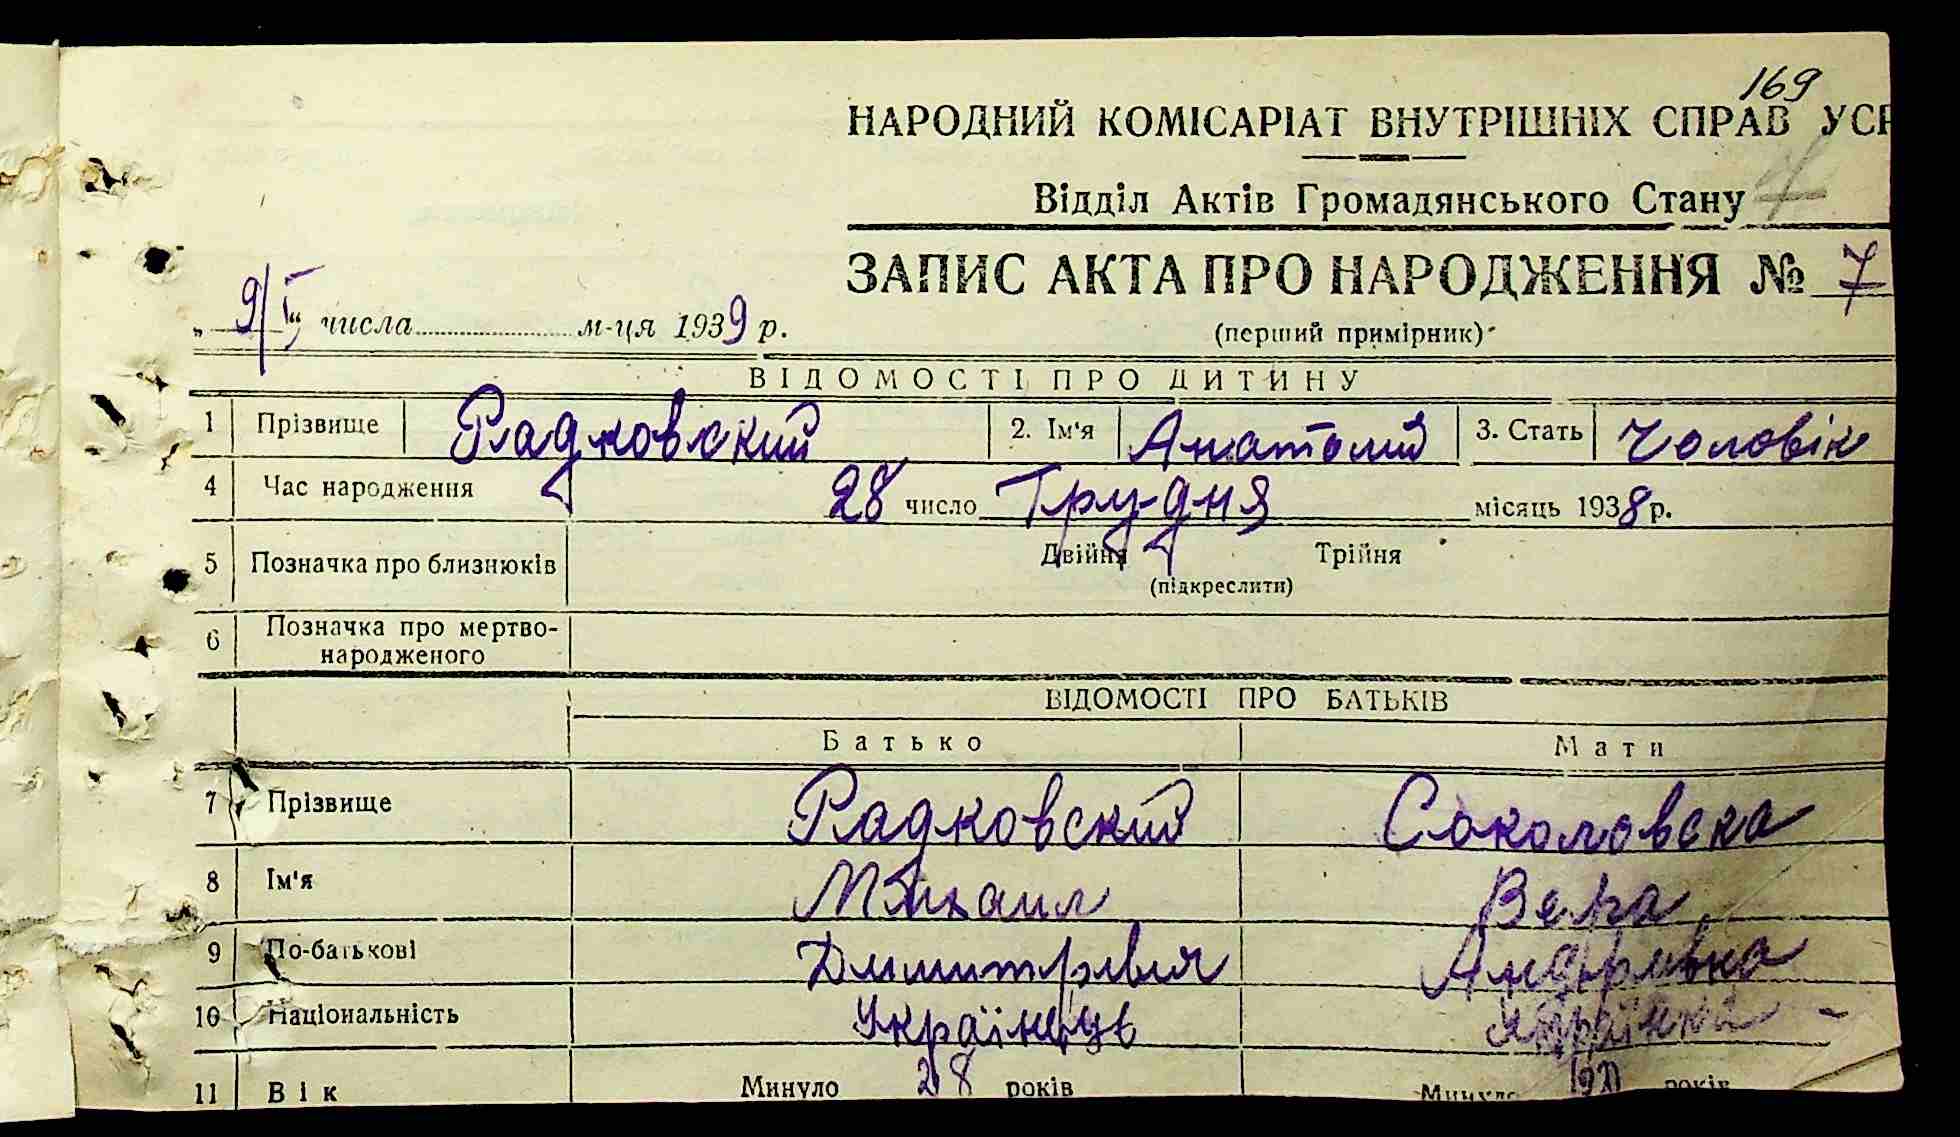 169
НАРОДНИЙ КОМІСАРІАТ ВНУТРІШНІХ СПРАВ УСР
Відділ Актів Громадянського Стану
ЗАПИС АКТА ПРО НАРОДЖЕННЯ № 7
„ 9/I “ числа м-ця 1939 р.
(перший примірник)
ВІДОМОСТІ ПРО ДИТИНУ
1 Прізвище Радковский 2. Ім'я Анатолий 3. Стать Чоловік
4 Час народження 28 число Грудня місяць 1938 р.
5 Позначка про близнюків Двійня Трійня
(підкреслити)
6 Позначка про мертво-
народженого
ВІДОМОСТІ ПРО БАТЬКІВ
Батько Мати
7 Прізвище Радковский Соколовска
8 Ім'я Михаил Вера
9 По-батькові Андривна
10 Національність Українець Українка
11 Вік Минуло 28 років Минуло років